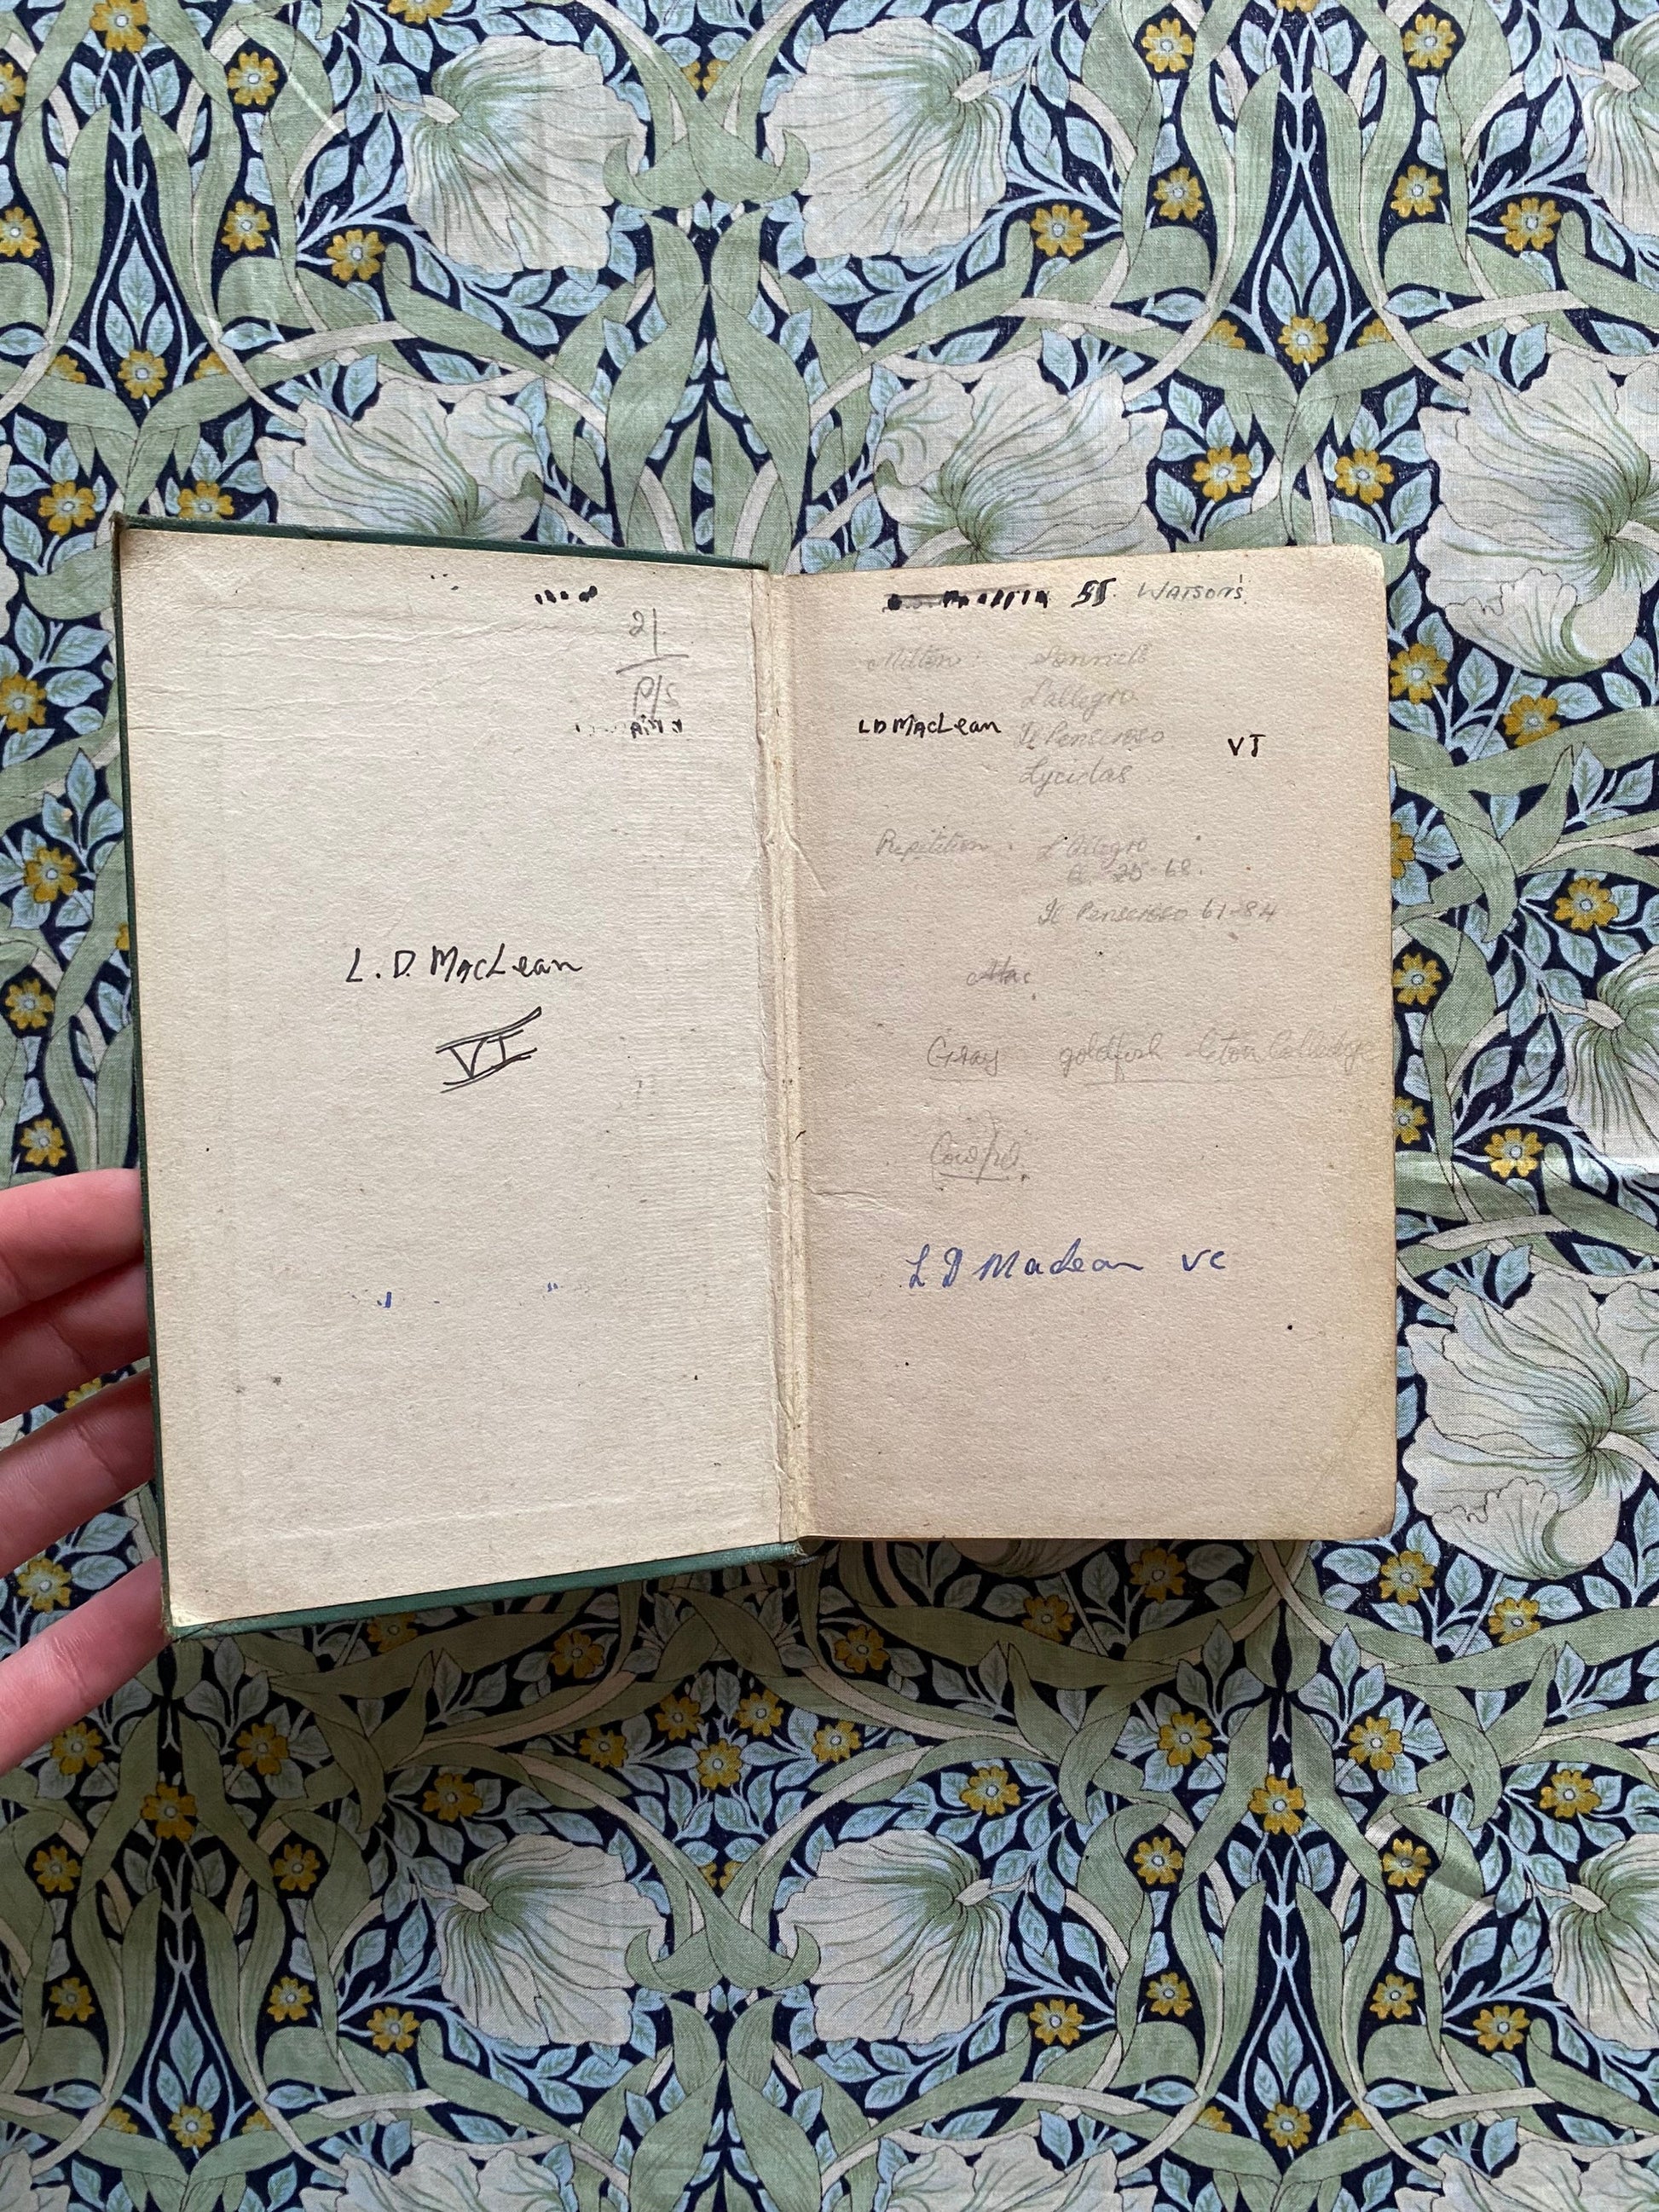 21
P/S
L.D. MacLean
VI
55. WATSON'S.
Milton: Sonnets
L'allegro
LD MacLean Il Penseroso VI
Lycidas
Repetition: L'Allegro
ll. 25-68.
Il Penseroso 61-84
Gray goldfish Eton College
L D Maclean VC